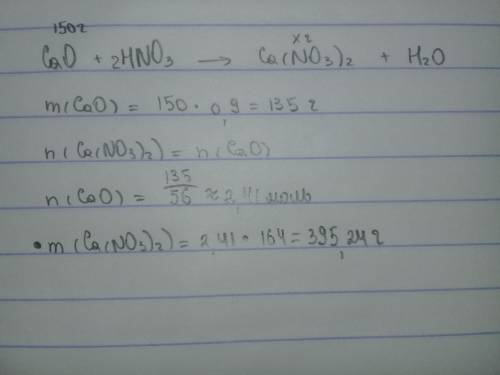 150г хг
CaO + 2HNO3 → Ca(NO3)2 + H2O
m(CaO) = 150 · 0,9 = 135 г
n(Ca(NO3)2) = n(CaO)
n(CaO) = 135/56 ≈ 2,41 моль
• m(Ca(NO3)2) = 2,41 · 164 = 395,24 г